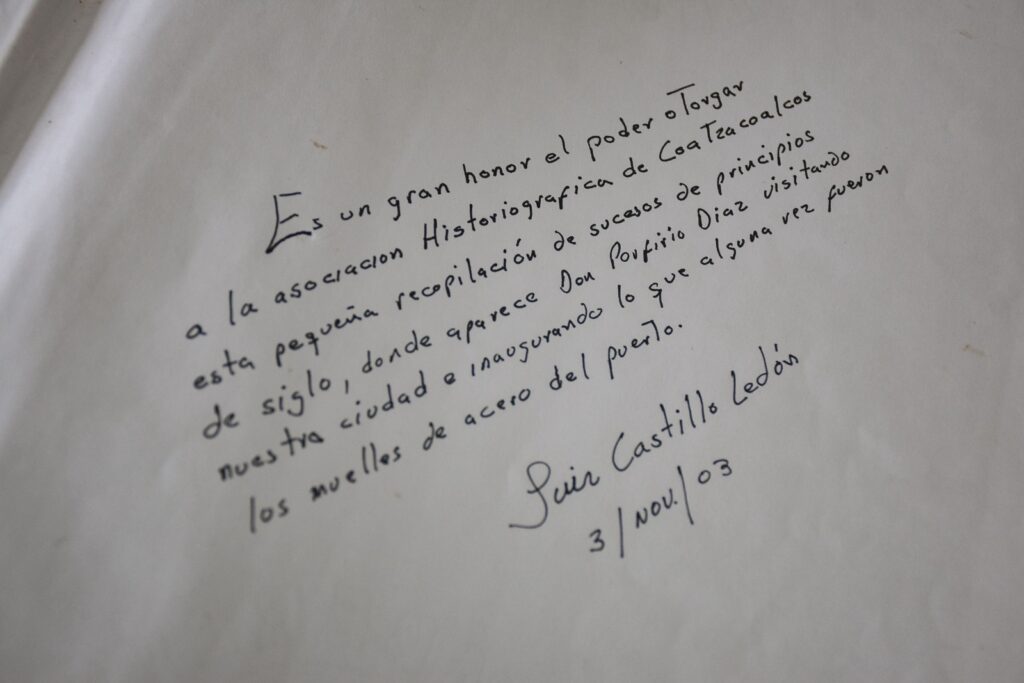 Es un gran honor el poder oTorgar
a la asociacion Historiografica de CoaTzacoalcos
esta pequeña recopilación de sucesos de principios
de siglo, donde aparece Don Porfirio Diaz visitando
nuestra ciudad e inaugurando lo que alguna vez fueron
los muelles de acero del puerto.
Luis Castillo Ledón
3/NOV./03